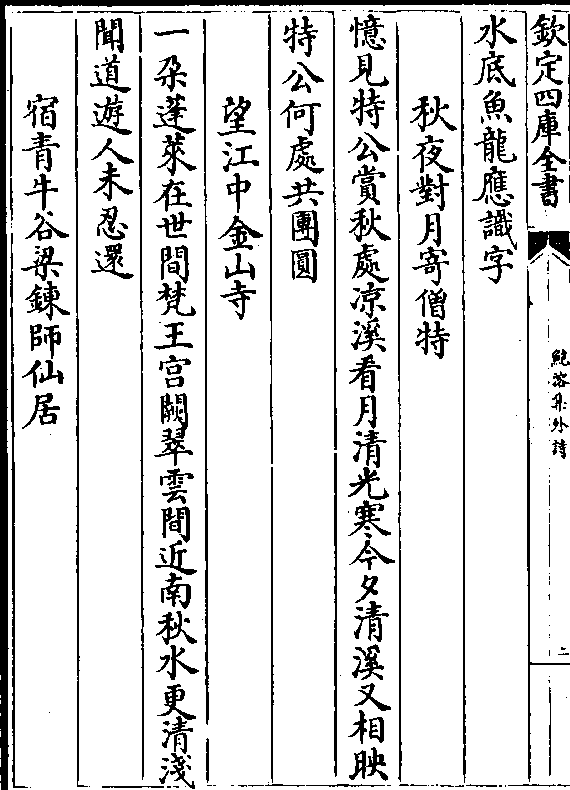 欽定四庫全書
鮑溶集外詩
二
水底魚龍應識字
秋夜對月寄僧特
憶見特公賞秋處凉溪看月清光寒今夕清溪又相映
特公何處共團圓
望江中金山寺
一朶蓬萊在世間梵王宫闕翠雲間近南秋水更清淺
聞道遊人未忍還
宿青牛谷梁鍊師仙居